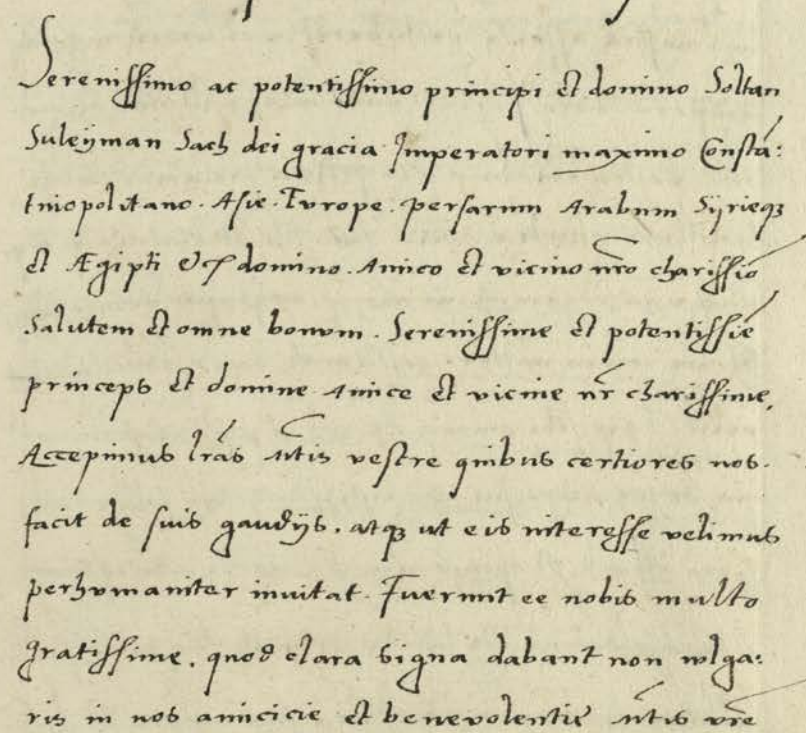 Serenissimo ac potentissimo principi et domino Soltan
Suleÿman Sach dei gracia Imperatori maximo Constā:
tniopolitano. Asie. Evrope. persarum Arabum Sÿrieqȝ
et Ægipti &c domino. Amico et vicino nr̄o charissiō
Salutem et omne bonvm. Serenissime et potentissiē
princeps et domine Amice et vicine nr̄ charissime,
Accepimus lr̄as Mtis vestre quibus certiores nos.
facit de suis gaudÿs. atqȝ ut eis interesse velimus
perhvmaniter invitat. Fuerunt ee nobis mvlto
gratissime, quod clara signa dabant non wlga:
ris in nos amicicie et benevolentie Mtis vr̄e